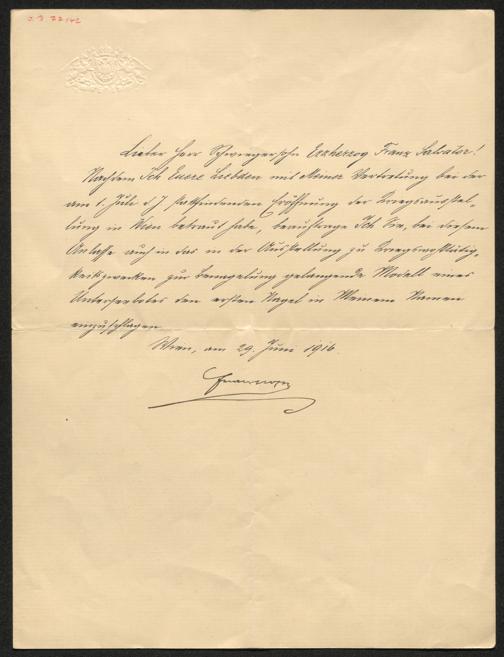 J. N. 72142
Lieber Herr Schwiegersohn Erzherzog Franz Salvator!
Nachdem Ich Euere Liebden mit Meiner Vertretung bei der
am 1. Juli d J stattfindenden Eröffnung der Kriegsausstel-
lung in Wien betraut habe, beauftrage Ich Sie, bei diesem
Anlasse auch in das in der Ausstellung zu Kriegswohltätig-
keitszwecken zur Benagelung gelangende Modell eines
Unterseebotes den ersten Nagel in Meinem Namen
einzuschlagen
Wien, am 29. Juni 1916.